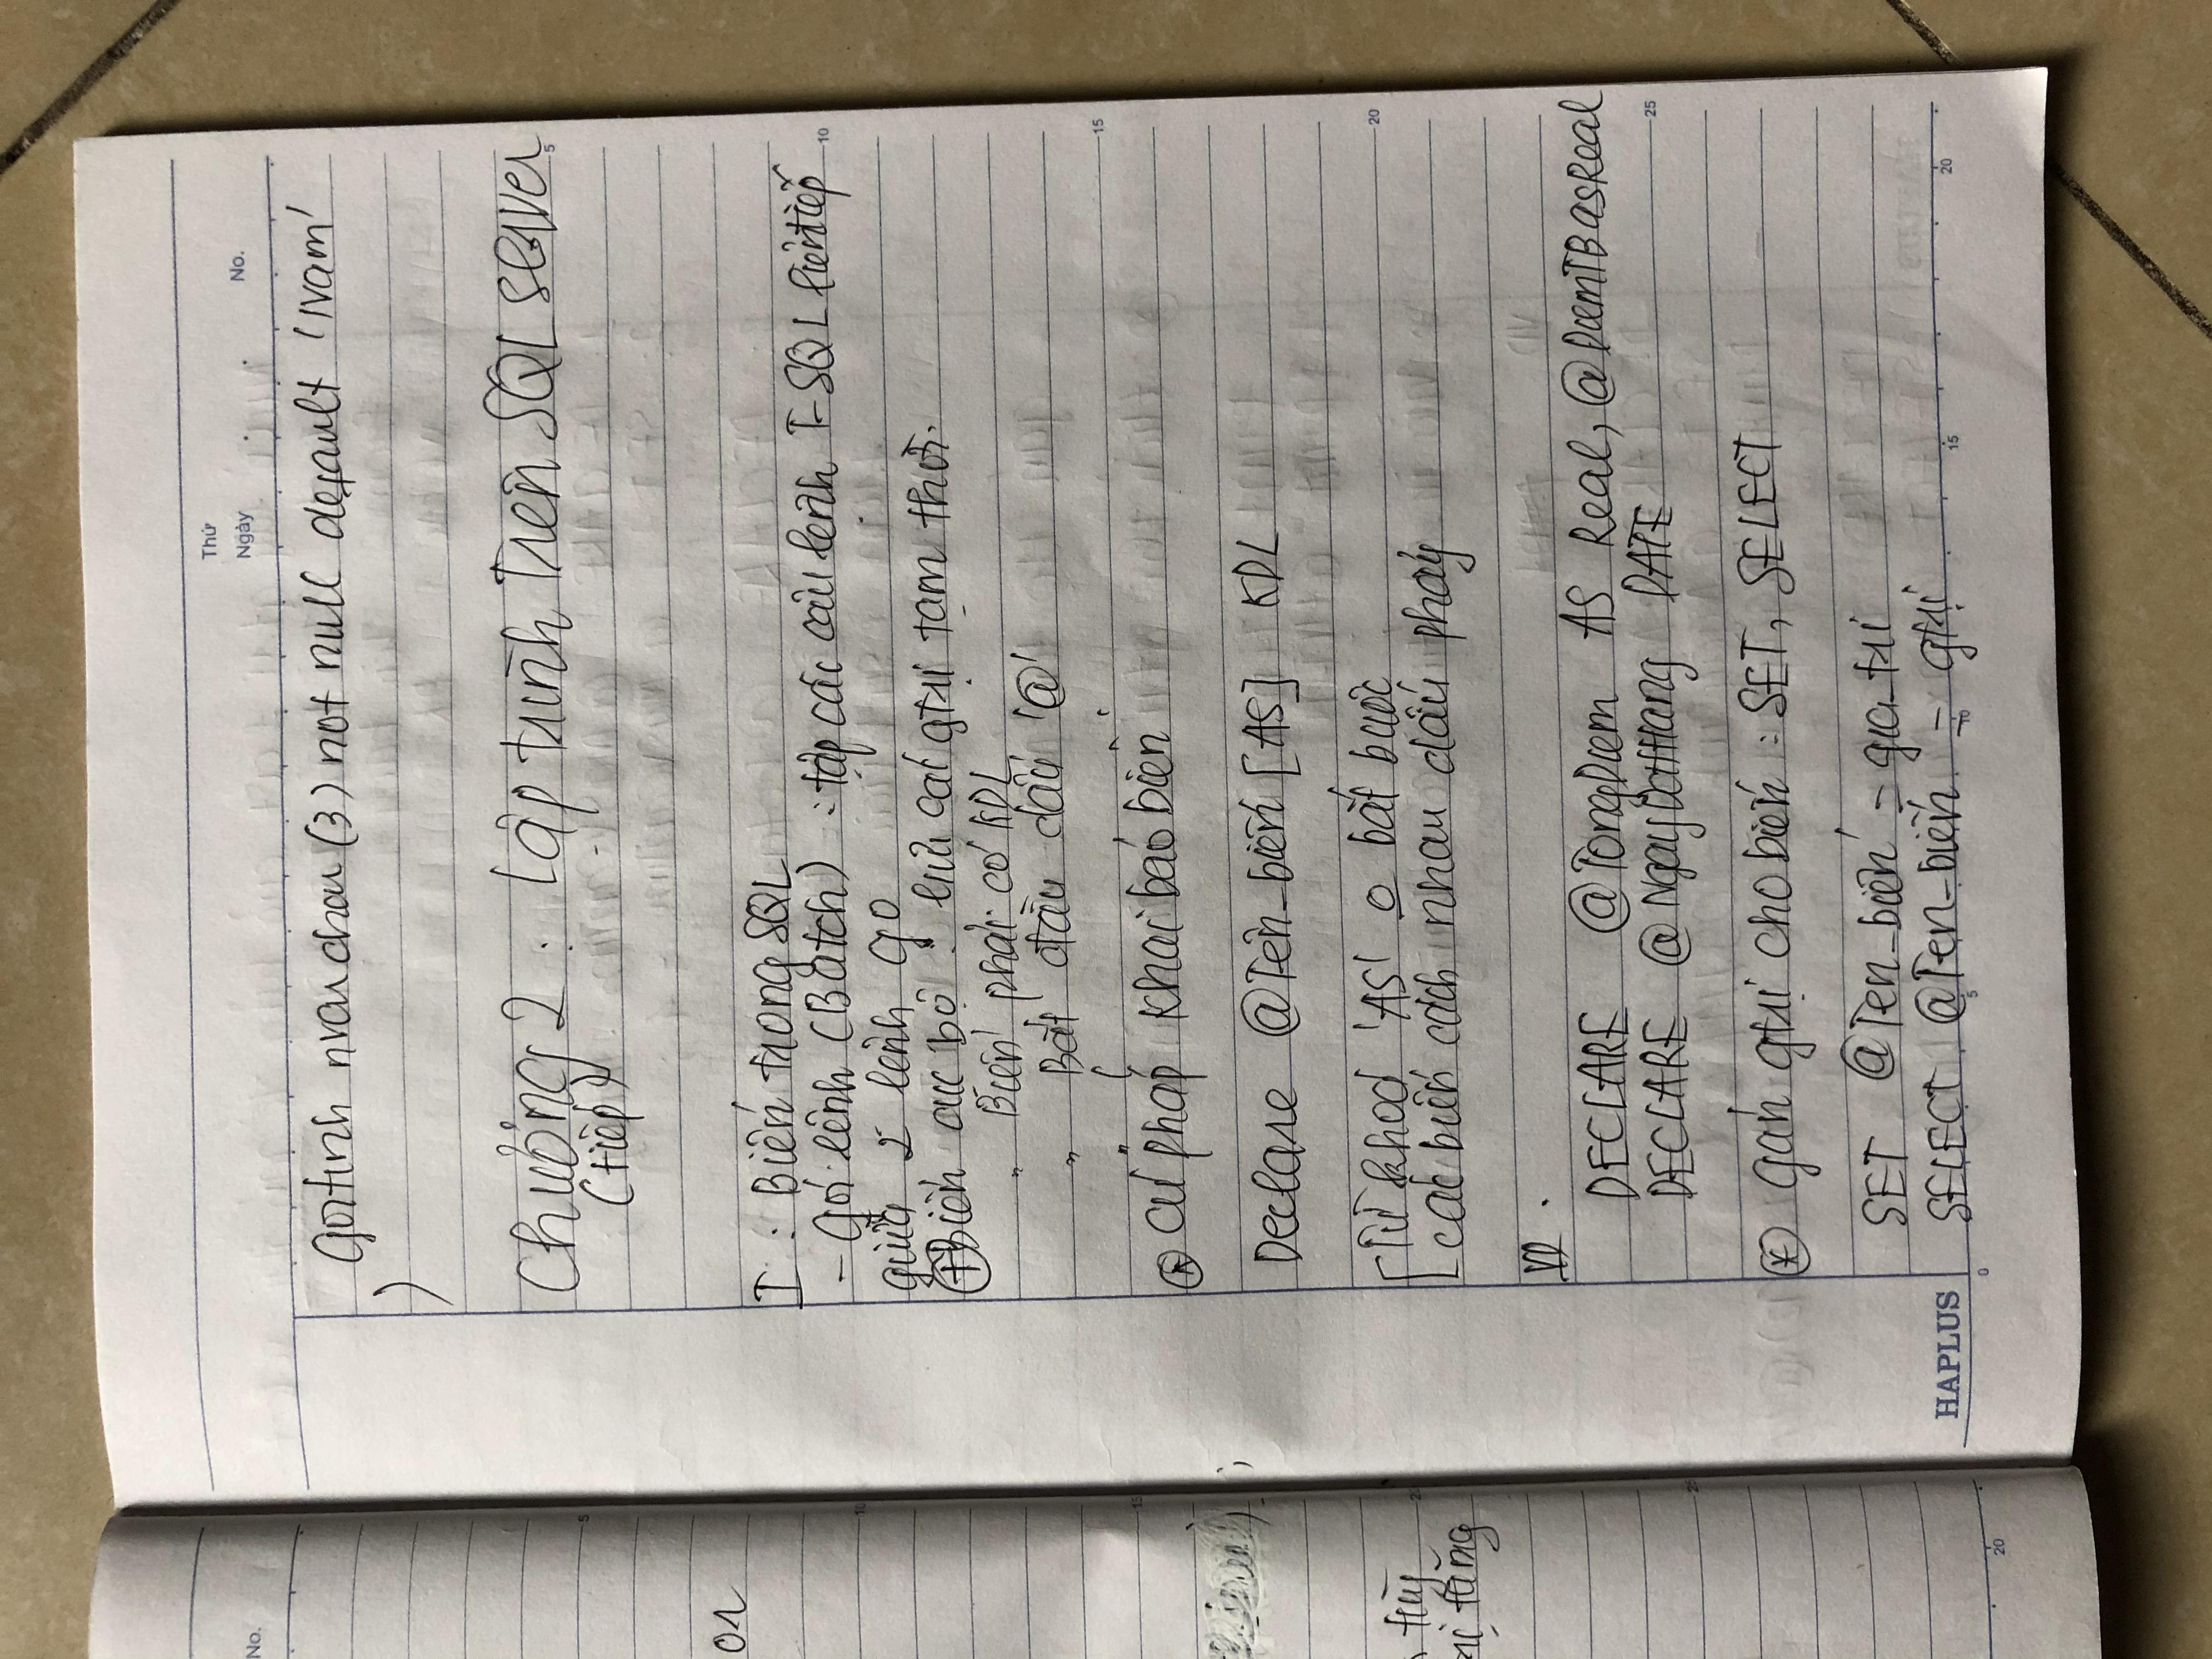 No.
or
tùy
tăng
Thứ
Ngày . . No.
Gioitinh nvarchar (3) not null default 'Nam'
)
Chương 2 : Lập trình Trên SQL server
(tiếp)
I : Biến trong SQL
- Gói lệnh (Batch) : tập các câu lệnh T-SQL liên tiếp
giữa 2 lệnh GO
+ Biến cục bộ : lưu các gtrị tạm thời.
" Biến phải có KDL
" Bắt đầu dấu '@'
* Cú pháp khai báo biến
Declare @Tên_biến [AS] KDL
Từ khoá 'AS' o bắt buộc
các biến cách nhau dấu phảy
VD .
DECLARE @TongDiem AS Real, @DiemTB as Real
DECLARE @NgayDatHang DATE
* Gán gtrị cho biến : SET, SELECT
SET @Ten_biến = gia_tri
SELECT @Ten_biến = gtrị
HAPLUS
0 5 10 15 20
5
10
15
20
25